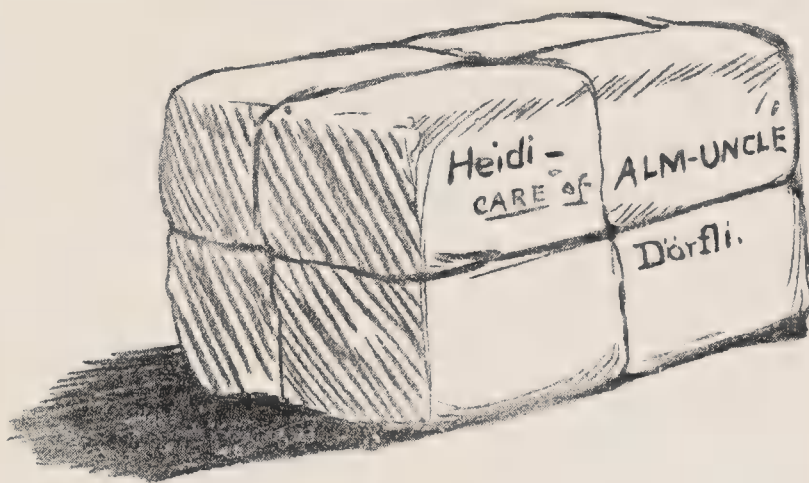 Heidi-
CARE of
ALM-UNCLE
Dörfli.